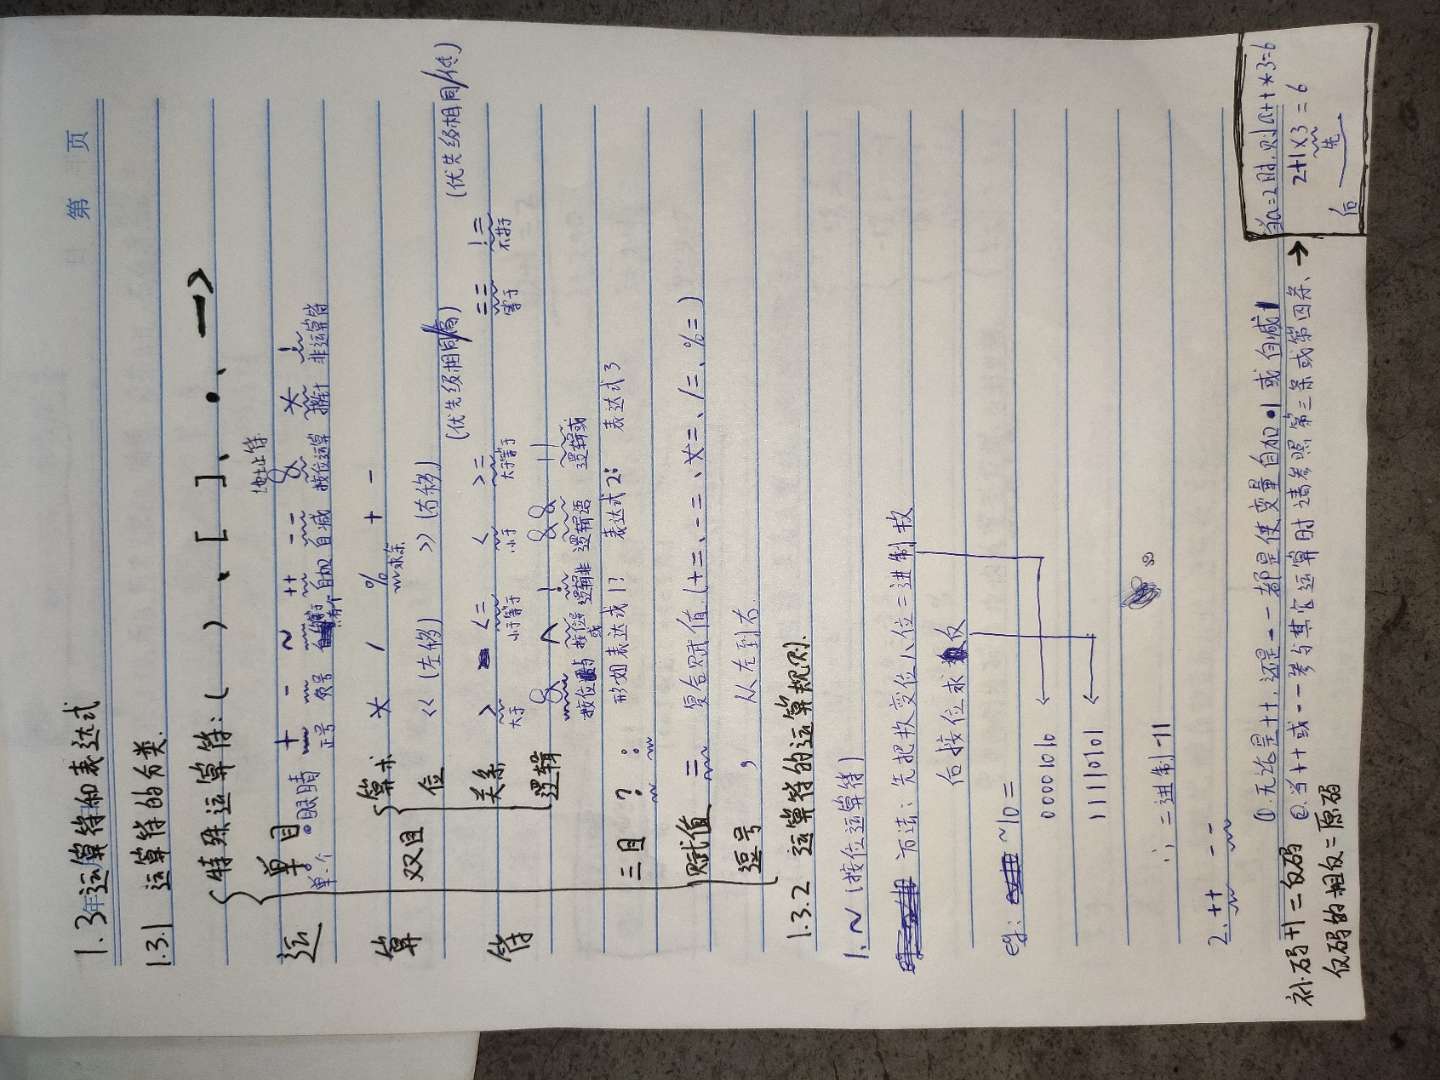 第 页
1.3 运算符和表达式
1.3.1 运算符的分类.
运算符
特殊运算符: ( ) 、 [ ] 、 · 、 →
地址符
单目 + - ~ ++ -- & * !
单个 眼睛 正号 负号 自加 自减 按位运算 指针 非运算符
双目
算术 * / % + -
求余
位 << (左移) >> (右移)
(优先级相同/高) (优先级相同/低)
关系 > <= < >= == !=
大于 小于等于 小于 大于等于 等于 不等于
逻辑 & ^ ! && ||
按位与 按位 逻辑非 逻辑语 逻辑或
三目 ? : 形如表达式1? 表达式2: 表达式3
赋值 = 复合赋值 (+=、-=、*=、/=、%=)
逗号 , 从左到右
1.3.2 运算符的运算规则.
1. ~ (按位运算符)
方法: 先把数变位八位二进制数
后按位求反
eg: ~10 =
00001010
11110101
∴ 二进制 -11
2. ++ --
①. 无论是++, 还是--都是使变量自加1或自减1
②. 当++或--参与其它运算时请参照第三条或第四条、→
当a=2时,则a++*3=6
2+1×3=6
先
后
补码+1=反码
反码的相反=原码